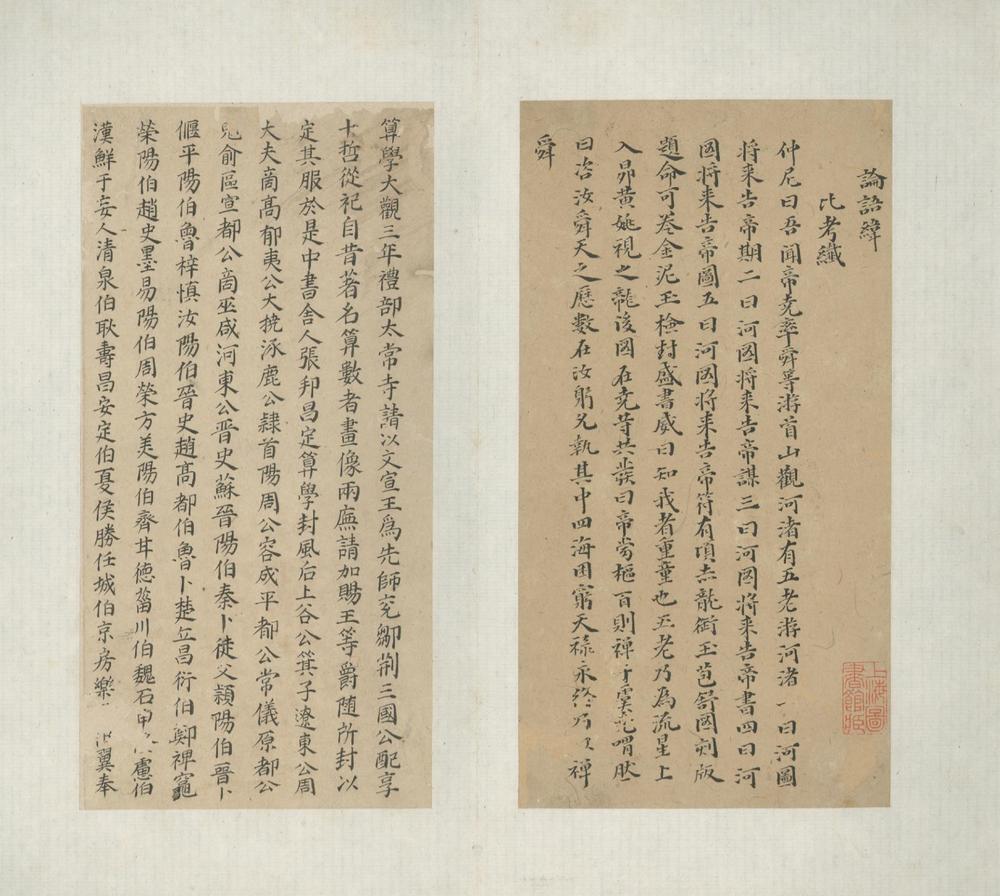 論語緯
比考纖
仲尼曰吾聞帝堯率舜等游首山觀河渚有五老游河渚一曰河圖
將来告帝期二曰河図將来告帝謀三曰河図將来告帝書四曰河
図將来告帝圖五曰河図將来告帝符有頃赤龍銜玉苞舒圖刻版
題命可卷金泥玉檢封盛書威曰知我者重童也五老乃為流星上
入昴黄姚視之龍後図在堯等共發曰帝當樞百則禪于虞堯喟然
曰咨汝舜天之歷數在汝躬允執其中四海困窮天祿永終乃以禪
舜
上海圖
書館藏
算學大觀三年禮部太常寺請以文宣王爲先師兗鄒荆三國公配享
十哲從祀自昔著名算數者畫像兩廡請加賜王等爵随所封以
定其服於是中書舍人張邦昌定算學封風后上谷公箕子遼東公周
大夫商高郁夷公大撓涿鹿公隸首陽周公容成平都公常儀原都公
鬼俞區宣都公商巫咸河東公晋史蘇晉陽伯秦卜徒父潁陽伯晉卜
偃平陽伯魯梓慎汝陽伯晉史趙高都伯魯卜楚丘昌衍伯鄭裨竈
榮陽伯趙史墨易陽伯周榮方美陽伯齊甘德菑川伯魏石申慮伯
漢鮮于妄人清泉伯耿壽昌安定伯夏侯勝任城伯京房樂翼奉